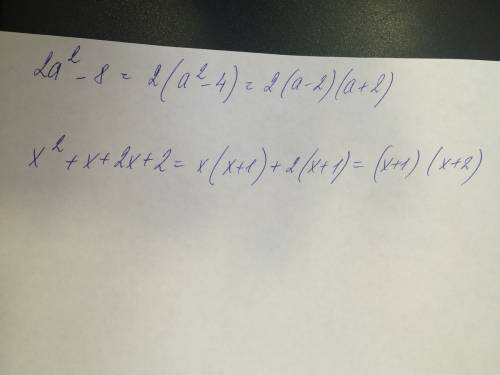 2a² - 8 = 2(a² - 4) = 2(a - 2)(a + 2)
x² + x + 2x + 2 = x(x+1) + 2(x+1) = (x+1)(x+2)